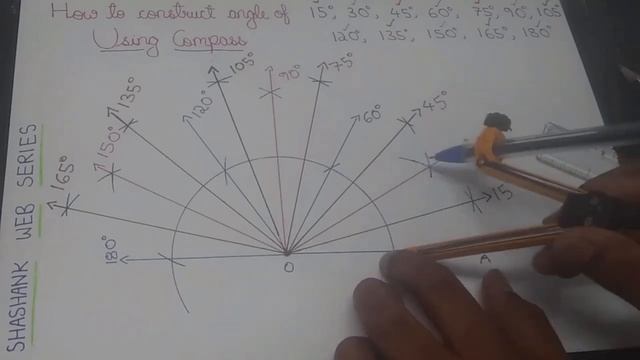 How to construct angle of 15°, 30°, 45°, 60°, 75°, 90°, 105°
Using Compass 120°, 135°, 150°, 165°, 180°
SHASHANK WEB SERIES
180°
165°
150°
135°
120°
105°
90°
75°
60°
45°
15
O
A